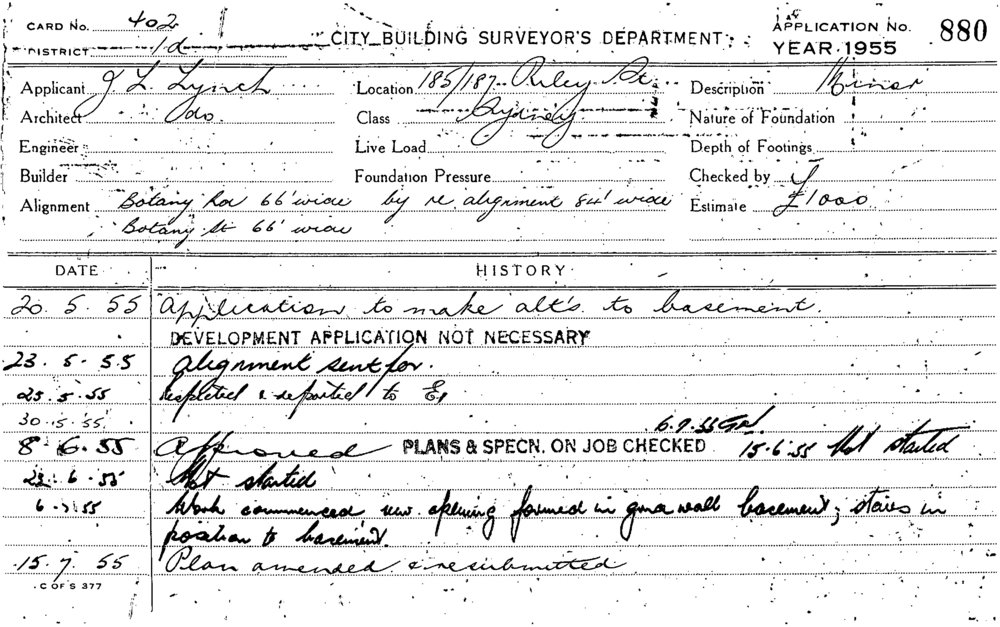 CARD No. 402
APPLICATION No. 880
DISTRICT 1d
CITY BUILDING SURVEYOR'S DEPARTMENT
YEAR 1955
Applicant J L Lynch Location 185/187 Riley St Description Minor
Architect do. Class Sydney Nature of Foundation
Engineer Live Load Depth of Footings
Builder Foundation Pressure Checked by
Alignment Botany Rd 66' wide by re alignment 84' wide Estimate £1000
Botany St 66' wide
DATE HISTORY
20. 5. 55 Application to make alt's to basement.
DEVELOPMENT APPLICATION NOT NECESSARY
23. 5. 55 Alignment sent for.
25. 5. 55 & reported to
30. 5. 55
6.7.55
8 6. 55 Approved PLANS & SPECN. ON JOB CHECKED 15.6.55 Not started
23. 6. 55 Not started
6. 7. 55 Work commenced new opening formed in wall basement; stairs in
position to basement.
15. 7. 55 Plan amended & resubmitted
C OF S 377